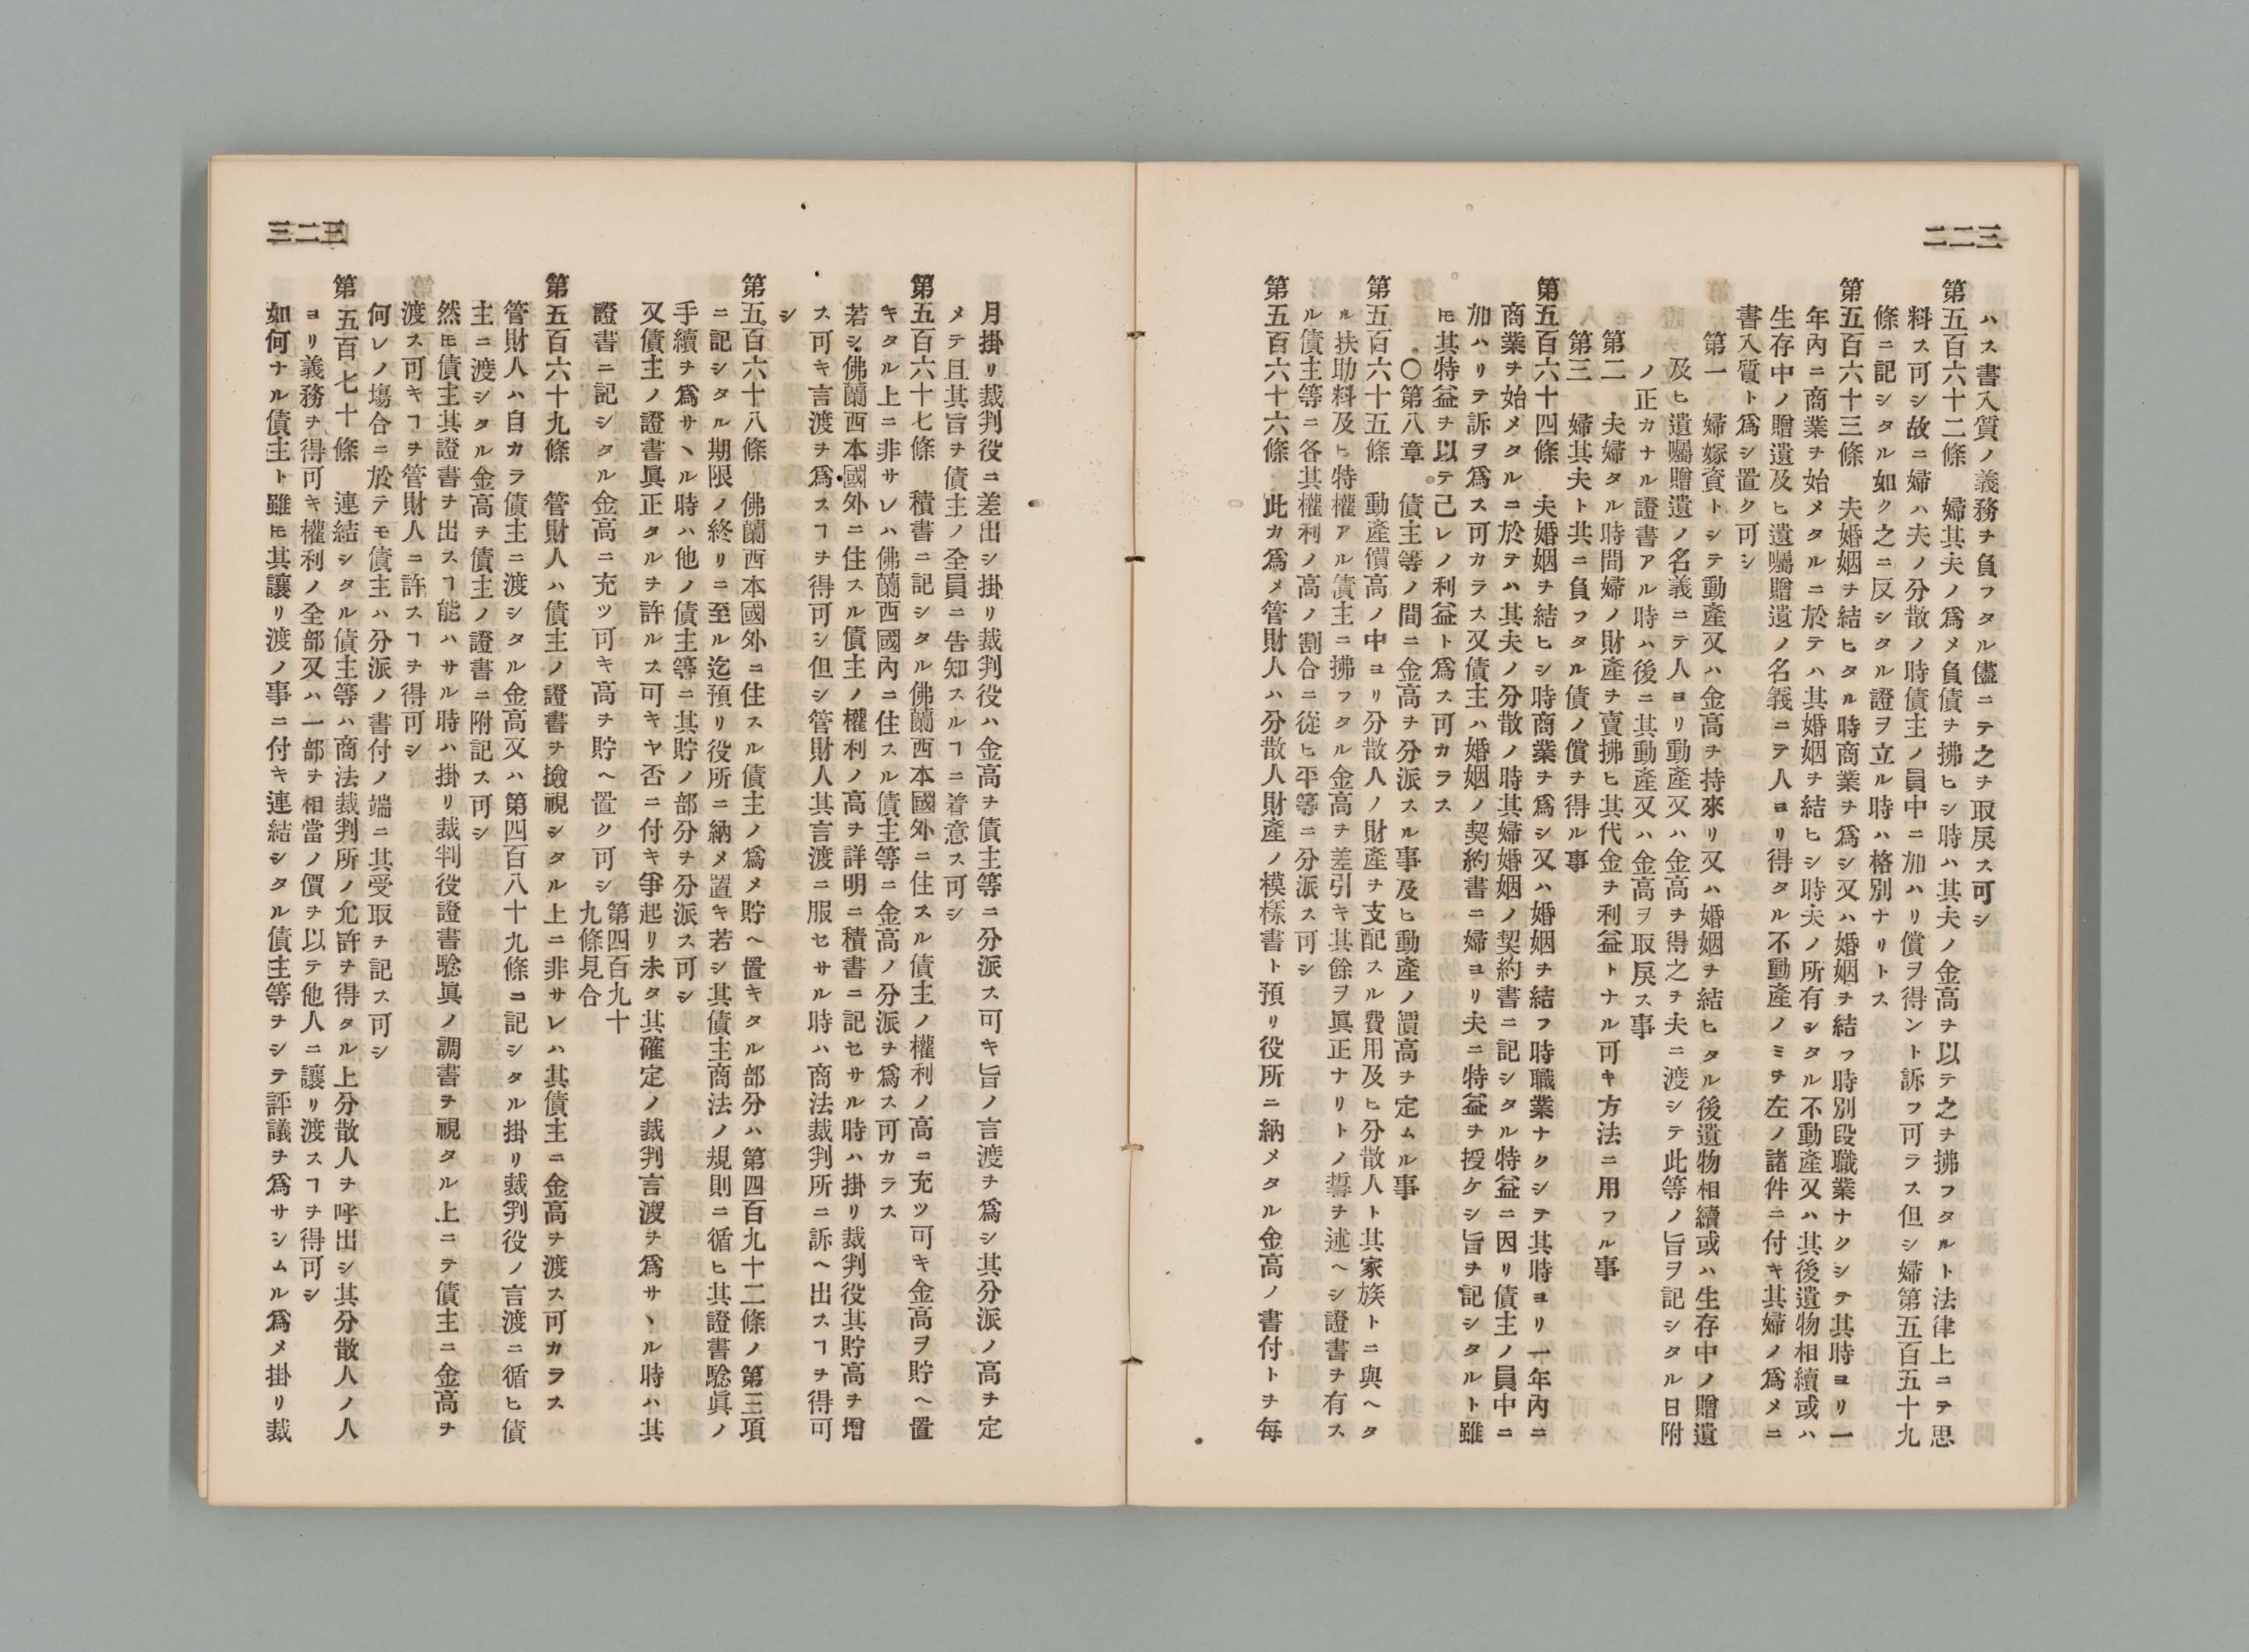 三二二
ハス書入質ノ義務ヲ負フタル儘ニテ之ヲ取戾ス可シ
第五百六十二條　婦其夫ノ爲メ負債ヲ拂ヒシ時ハ其夫ノ金高ヲ以テ之ヲ拂フタルト法律上ニテ思
料ス可シ故ニ婦ハ夫ノ分散ノ時債主ノ員中ニ加ハリ償ヲ得ント訴フ可ラス但シ婦第五百五十九
條ニ記シタル如ク之ニ反シタル證ヲ立ル時ハ格別ナリトス
第五百六十三條　夫婚姻ヲ結ヒタル時商業ヲ爲シ又ハ婚姻ヲ結フ時別段職業ナクシテ其時ヨリ一
年內ニ商業ヲ始メタルニ於テハ其婚姻ヲ結ヒシ時夫ノ所有シタル不動產又ハ其後遺物相續或ハ
生存中ノ贈遺及ヒ遺囑贈遺ノ名義ニテ人ヨリ得タル不動產ノミヲ左ノ諸件ニ付キ其婦ノ爲メニ
書入質ト爲シ置ク可シ
第一　婦嫁資トシテ動產又ハ金高ヲ持來リ又ハ婚姻ヲ結ヒタル後遺物相續或ハ生存中ノ贈遺
及ヒ遺囑贈遺ノ名義ニテ人ヨリ動產又ハ金高ヲ得之ヲ夫ニ渡シテ此等ノ旨ヲ記シタル日附
ノ正カナル證書アル時ハ後ニ其動產又ハ金高ヲ取戾ス事
第二　夫婦タル時間婦ノ財產ヲ賣拂ヒ其代金ヲ利益トナル可キ方法ニ用フル事
第三　婦其夫ト共ニ負フタル債ノ償ヲ得ル事
第五百六十四條　夫婚姻ヲ結ヒシ時商業ヲ爲シ又ハ婚姻ヲ結フ時職業ナクシテ其時ヨリ一年內ニ
商業ヲ始メタルニ於テハ其夫ノ分散ノ時其婦婚姻ノ契約書ニ記シタル特益ニ因リ債主ノ員中ニ
加ハリテ訴ヲ爲ス可カラス又債主ハ婚姻ノ契約書ニ婦ヨリ夫ニ特益ヲ授ケシ旨ヲ記シタルト雖
𪜈其特益ヲ以テ己レノ利益ト爲ス可カラス
〇第八章　債主等ノ間ニ金高ヲ分派スル事及ヒ動產ノ價高ヲ定ムル事
第五百六十五條　動產價高ノ中ヨリ分散人ノ財產ヲ支配スル費用及ヒ分散人ト其家族トニ與ヘタ
ル扶助料及ヒ特權アル債主ニ拂フタル金高ヲ差引キ其餘ヲ眞正ナリトノ誓ヲ述ヘシ證書ヲ有ス
ル債主等ニ各其權利ノ高ノ割合ニ從ヒ平等ニ分派ス可シ
第五百六十六條　此カ爲メ管財人ハ分散人財產ノ模樣書ト預リ役所ニ納メタル金高ノ書付トヲ每
三二三
月掛リ裁判役ニ差出シ掛リ裁判役ハ金高ヲ債主等ニ分派ス可キ旨ノ言渡ヲ爲シ其分派ノ高ヲ定
メテ且其旨ヲ債主ノ全員ニ告知スルヿニ着意ス可シ
第五百六十七條　積書ニ記シタル佛蘭西本國外ニ住スル債主ノ權利ノ高ニ充ツ可キ金高ヲ貯ヘ置
キタル上ニ非サレハ佛蘭西國內ニ住スル債主等ニ金高ノ分派ヲ爲ス可カラス
若シ佛蘭西本國外ニ住スル債主ノ權利ノ高ヲ詳明ニ積書ニ記セサル時ハ掛リ裁判役其貯高ヲ增
ス可キ言渡ヲ爲スヿヲ得可シ但シ管財人其言渡ニ服セサル時ハ商法裁判所ニ訴ヘ出スヿヲ得可
シ
第五百六十八條　佛蘭西本國外ニ住スル債主ノ爲メ貯ヘ置キタル部分ハ第四百九十二條ノ第三項
ニ記シタル期限ノ終リニ至ル迄預リ役所ニ納メ置キ若シ其債主商法ノ規則ニ循ヒ其證書驗眞ノ
手續ヲ爲サヽル時ハ他ノ債主等ニ其貯ノ部分ヲ分派ス可シ
又債主ノ證書眞正タルヲ許ルス可キヤ否ニ付キ爭起リ未タ其確定ノ裁判言渡ヲ爲サヽル時ハ其
證書ニ記シタル金高ニ充ツ可キ高ヲ貯ヘ置ク可シ　第四百九十
九條見合
第五百六十九條　管財人ハ債主ノ證書ヲ撿視シタル上ニ非サレハ其債主ニ金高ヲ渡ス可カラス
管財人ハ自カラ債主ニ渡シタル金高又ハ第四百八十九條ニ記シタル掛リ裁判役ノ言渡ニ循ヒ債
主ニ渡シタル金高ヲ債主ノ證書ニ附記ス可シ
然𪜈債主其證書ヲ出スヿ能ハサル時ハ掛リ裁判役證書驗眞ノ調書ヲ視タル上ニテ債主ニ金高ヲ
渡ス可キヿヲ管財人ニ許スヿヲ得可シ
何レノ塲合ニ於テモ債主ハ分派ノ書付ノ端ニ其受取ヲ記ス可シ
第五百七十條　連結シタル債主等ハ商法裁判所ノ允許ヲ得タル上分散人ヲ呼出シ其分散人ノ人
ヨリ義務ヲ得可キ權利ノ全部又ハ一部ヲ相當ノ價ヲ以テ他人ニ讓リ渡スヿヲ得可シ
如何ナル債主ト雖𪜈其讓リ渡ノ事ニ付キ連結シタル債主等ヲシテ評議ヲ爲サシムル爲メ掛リ裁